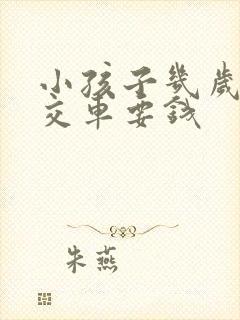 小孩子幾歲
交車要錢
朱燕